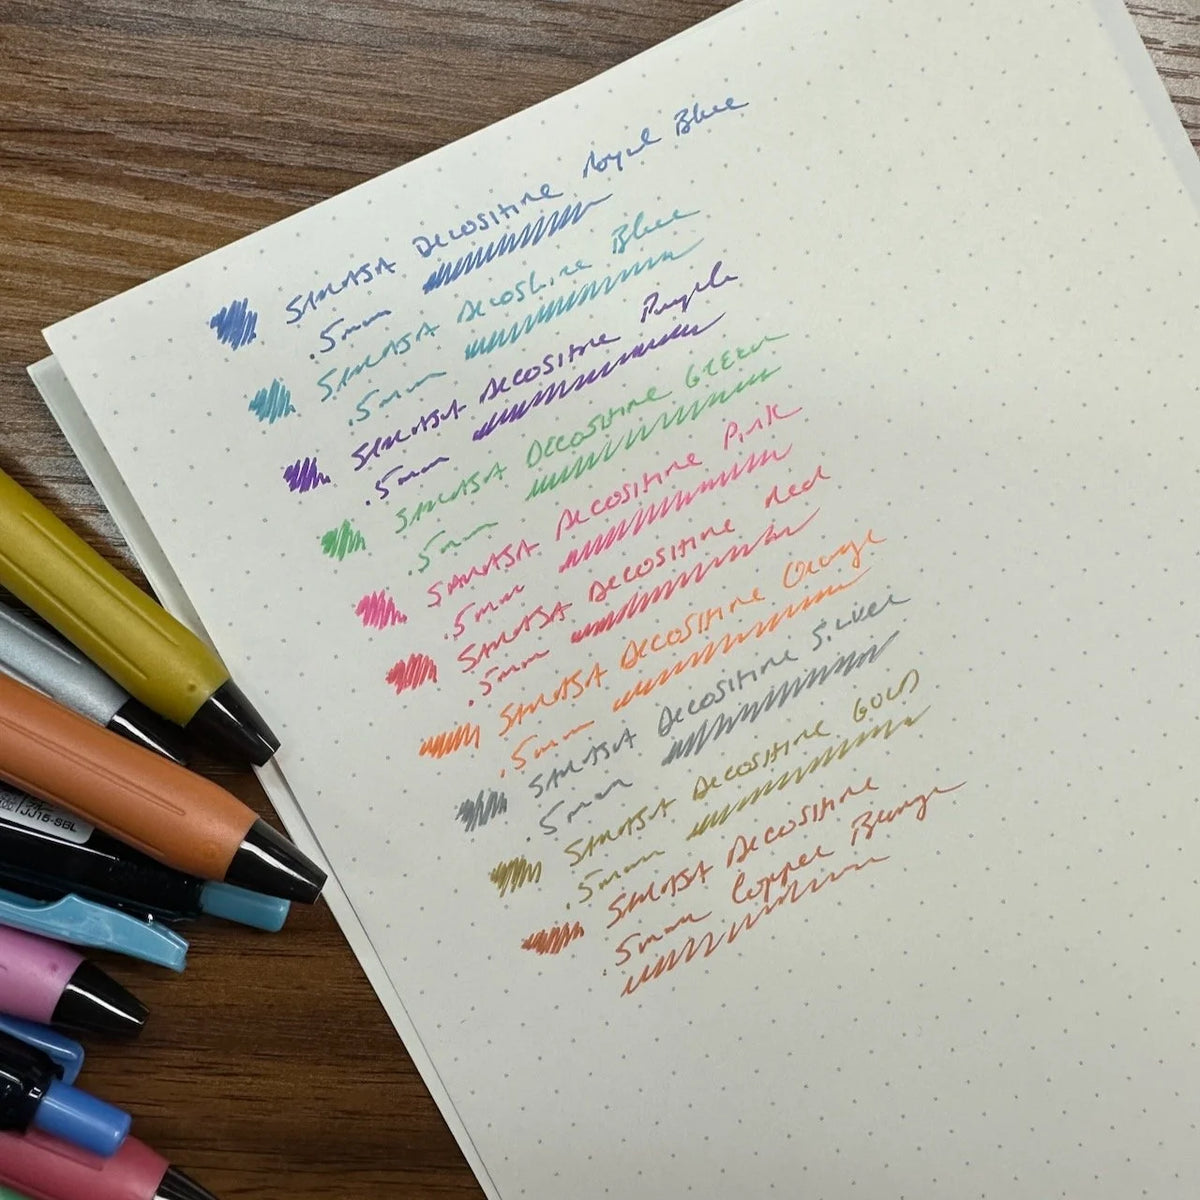 SARASA DECOSHINE Royal Blue
.5mm
SARASA DECOSHINE Blue
.5mm
SARASA DECOSHINE Purple
.5mm
SARASA DECOSHINE GREEN
.5mm
SARASA DECOSHINE Pink
.5mm
SARASA DECOSHINE Red
.5mm
SARASA DECOSHINE Orange
.5mm
SARASA DECOSHINE Silver
.5mm
SARASA DECOSHINE GOLD
.5mm
SARASA DECOSHINE
.5mm Copper
JJ15-SBL